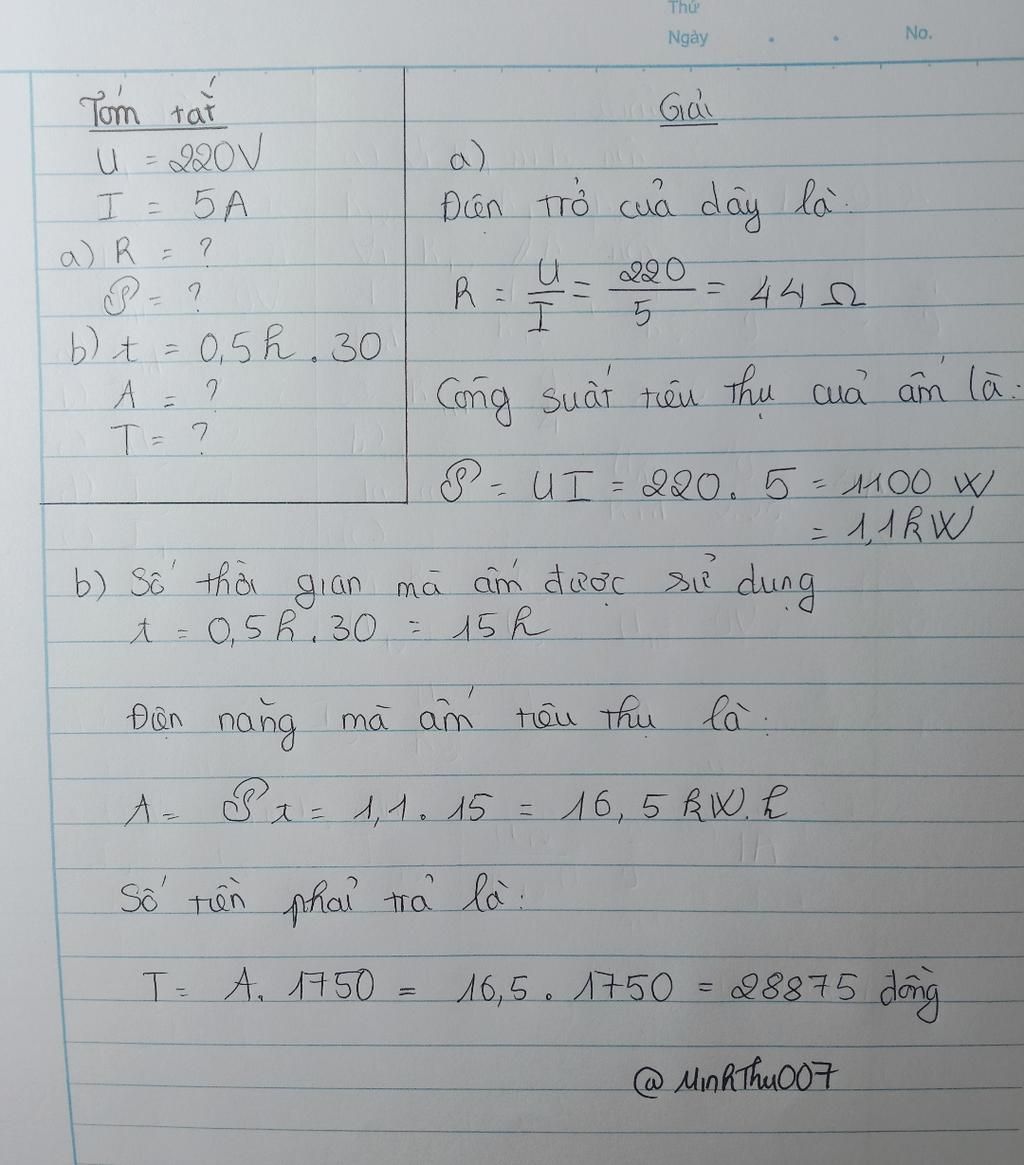 Thứ
Ngày . . No.
Tóm tắt
U = 220V
I = 5A
a) R = ?
𝒫 = ?
b) t = 0,5h . 30
A = ?
T = ?
Giải
a)
Điện trở của dây là:
R = U/I = 220/5 = 44 Ω
Công suất tiêu thụ của ấm là:
𝒫 = UI = 220 . 5 = 1100 W
= 1,1kW
b) Số thời gian mà ấm được sử dụng
t = 0,5h . 30 = 15h
Điện năng mà ấm tiêu thụ là:
A = 𝒫t = 1,1 . 15 = 16,5 kW.h
Số tiền phải trả là:
T = A. 1750 = 16,5 . 1750 = 28875 đồng
@MinhThu007